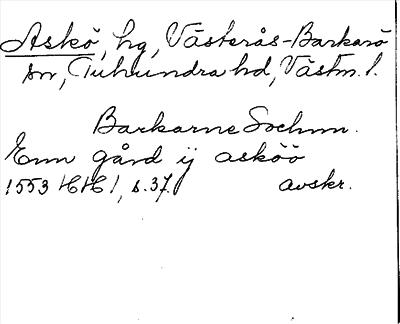 Askö, hg, Västerås-Barkarö
sn, Tuhundra hd, Västm. l.
Barkarne Sochnn.
Enn gård ij asköö
1553 HH 1, s. 37. avskr.